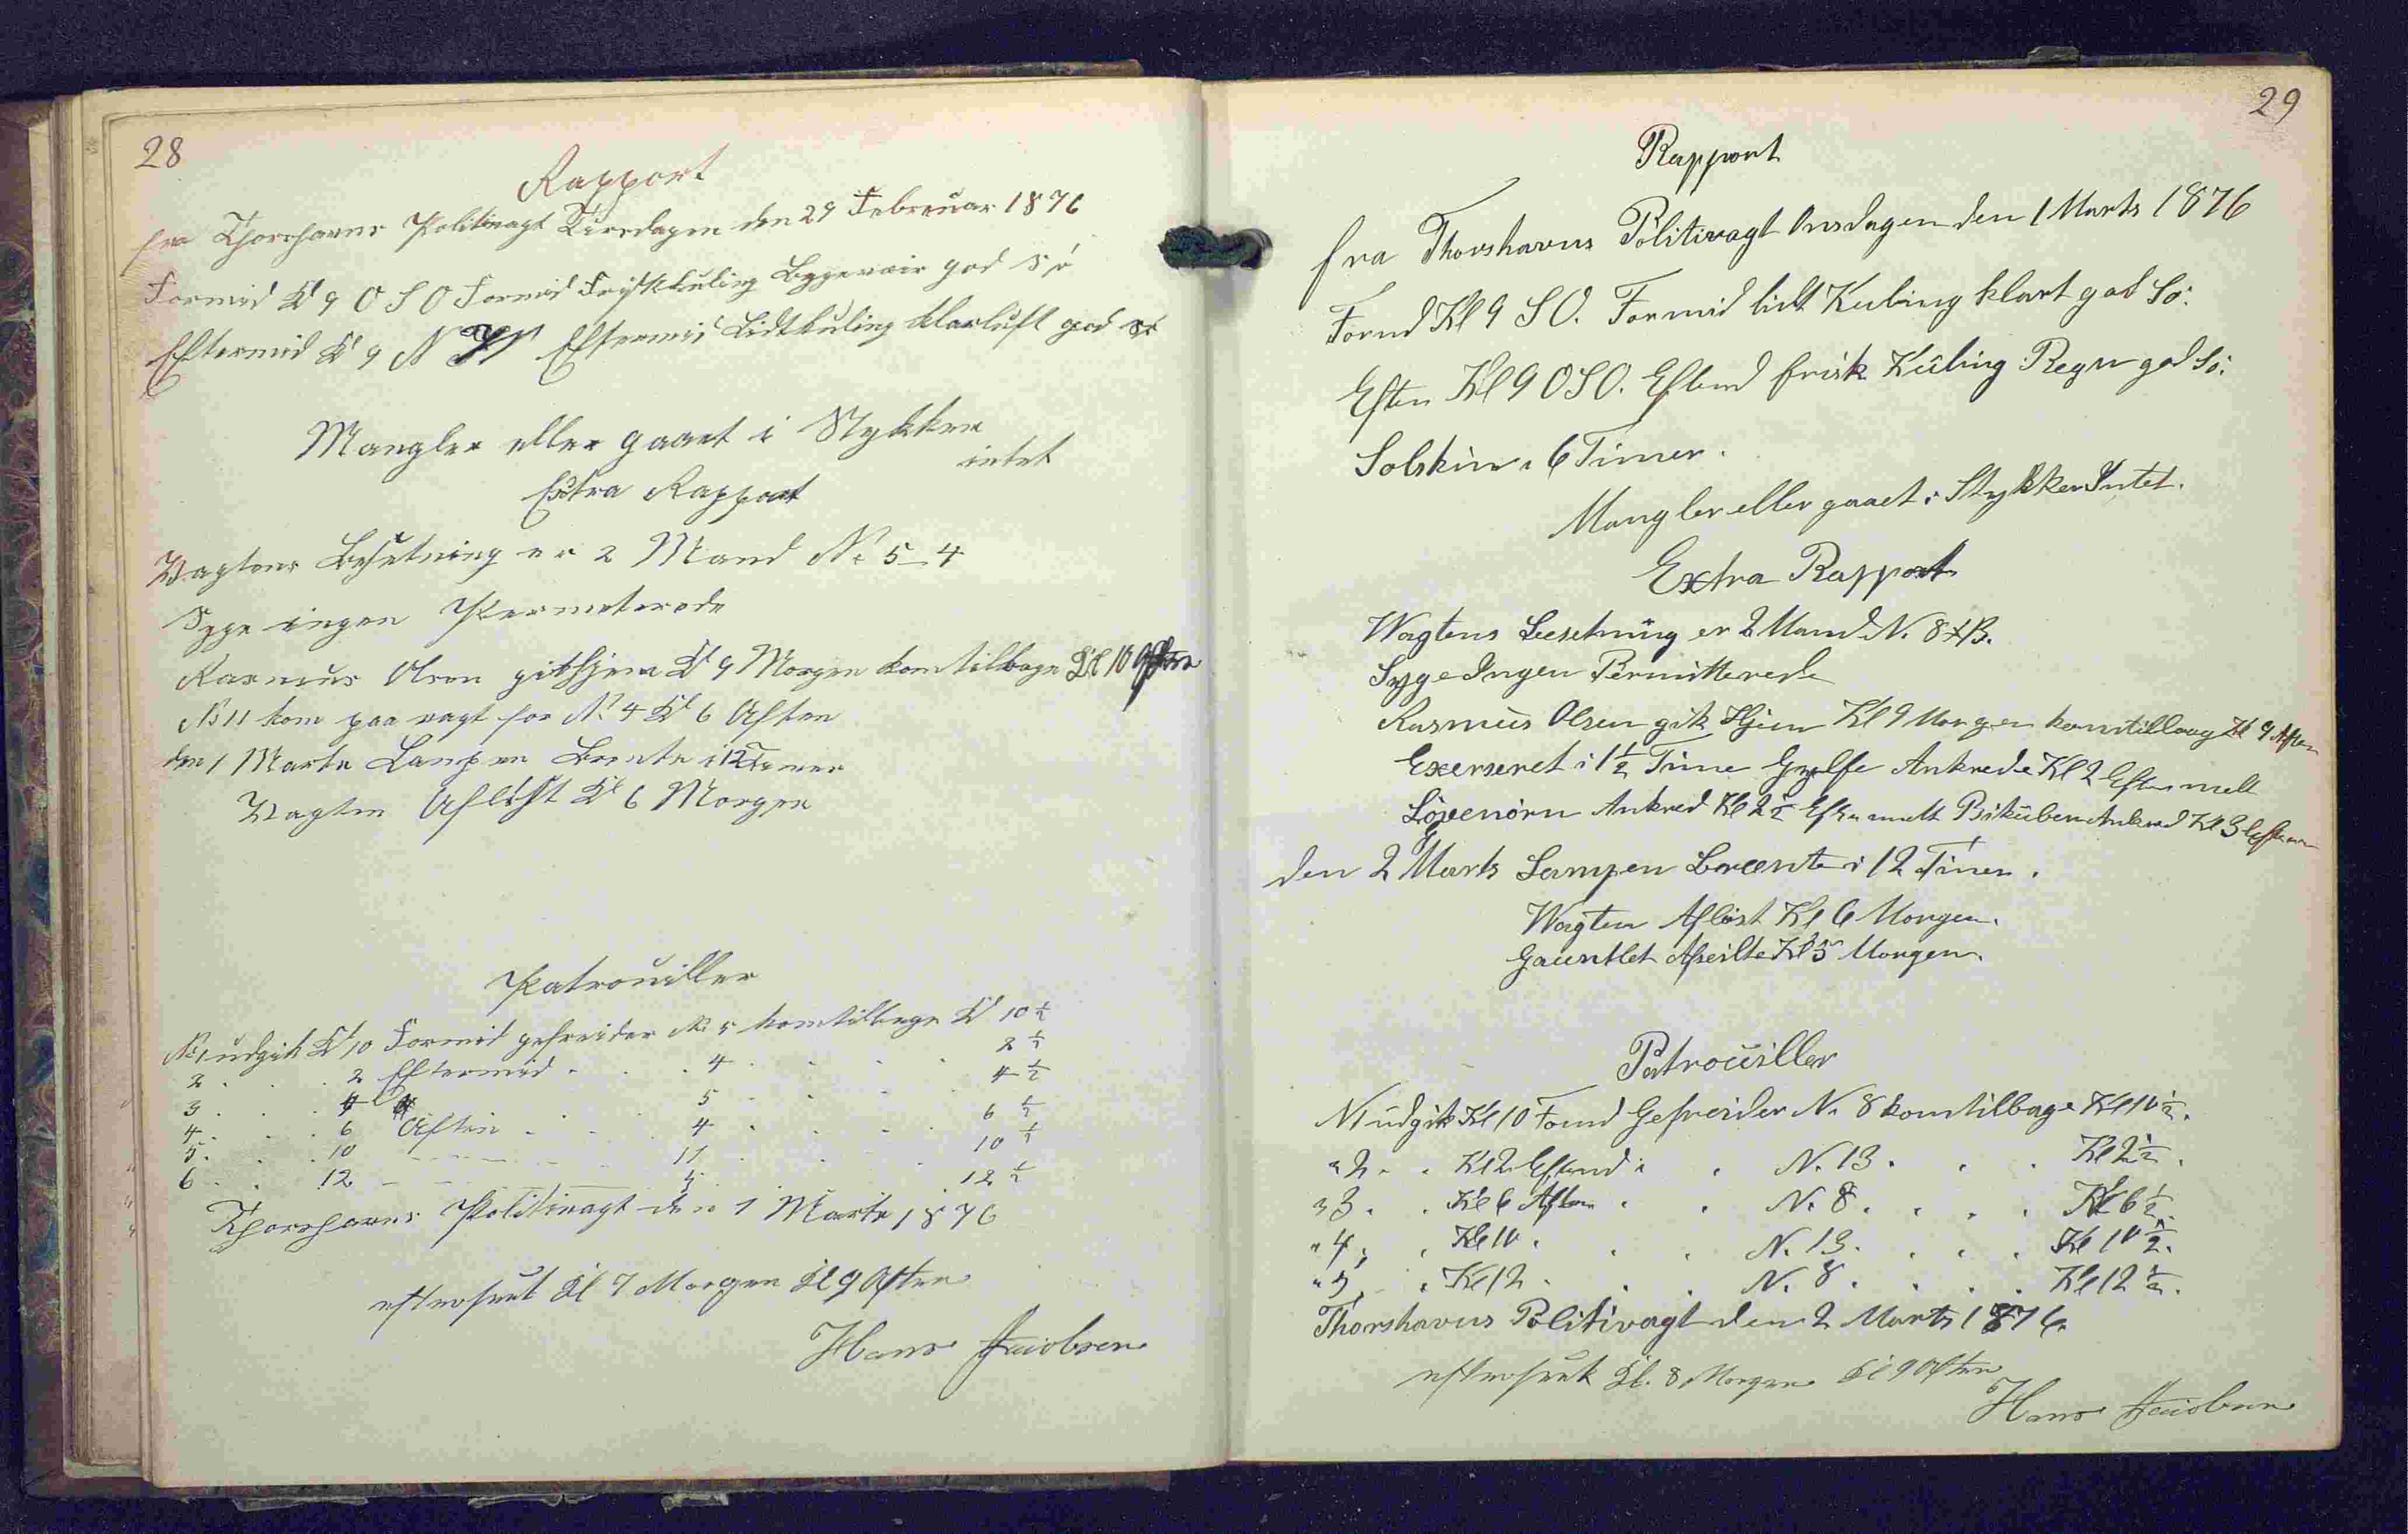 28
Rapport
fra Thorshavns Politivagt Tirsdagen den 29 Februar 1876
Formid Kl 9 O S O Formid Friskkuling Bygevair god Sö
Eftermid Kl 9 N Eftermid Lidtkuling Klarluft god Sö
Mangler eller gaaet i Stykker
intet
Extra Rapport
Vagtens Besetning er 2 Mand No 5 - 4
Syge ingen Permeterede
Rasmus Olsen gikhjem Kl 9 Morgen komtilbage Kl 10 Aften
No 11 kom paa vagt for No 4 Kl 6 Aften
den 1 Marts Lampen Brente i 12 Timer
Vagten Aflöst Kl 6 Morgen
Patrouiller
No 1 udgik Kl 10 Formid gefreider No 5 komtilbage Kl 10 ½
2 . . . 2 Eftermid . . . 4 . . . . 2 ½
3 . . . 4 . . . 5 . . . 4 ½
4 . . . 6 Aften . . . 4 . . . . 6 ½
5 . . . 10 . . . 11 . . . 10 ½
6 . . 12 . . . 5 . . . 12 ½
Thorshavns Politivagt den 1 Marts 1876
efterseet Kl 7 Morgen Kl 9 Aften
Hans Jacobsen
29
Rapport
fra Thorshavns Politivagt Onsdagen den 1 Marts 1876
Formd Kl 9 S O. Formid lidt Kuling klart god Sö.
Eften Kl 9 O S O. Eftmd frisk Kuling Regn god Sö.
Solskin i 6 Timer.
Mangler eller gaaet i Stykker Intet.
Extra Rapport
Wagtens Besetning er 2 Mand N. 8 & 13.
Syge Ingen Permitterede
Rasmus Olsen gik Hjem Kl 9 Morgen komtilbag Kl 9 Aften
Exerseret i 1½ Time Gylfe Ankrede Kl 2 Eftermell
Lövenörn Ankred Kl 2½ Eftermell Bikuben Ankred Kl 3 Efterm
den 2 Marts Lampen Brænte i 12 Timer.
Wagten Aflöst Kl 6 Morgen.
Gauntlet Afseilte Kl 5 Morgen.
Patrouiller
N 1 udgik Kl 10 Formd Gefreider N. 8 komtilbage Kl 10½.
" 2 . . Kl 2 Eftmd . . N. 13 . . . Kl 2½.
" 3 . . Kl 6 Aften . . N. 8 . . . . Kl 6½.
" 4 . . Kl 10 . . . N. 13 . . . . Kl 10½.
" 5 . . Kl 12 . . . N. 8 . . . . Kl 12½.
Thorshavns Politivagt den 2 Marts 1876.
efterseet Kl. 8 Morgen Kl 9 Aften
Hans Jacobsen